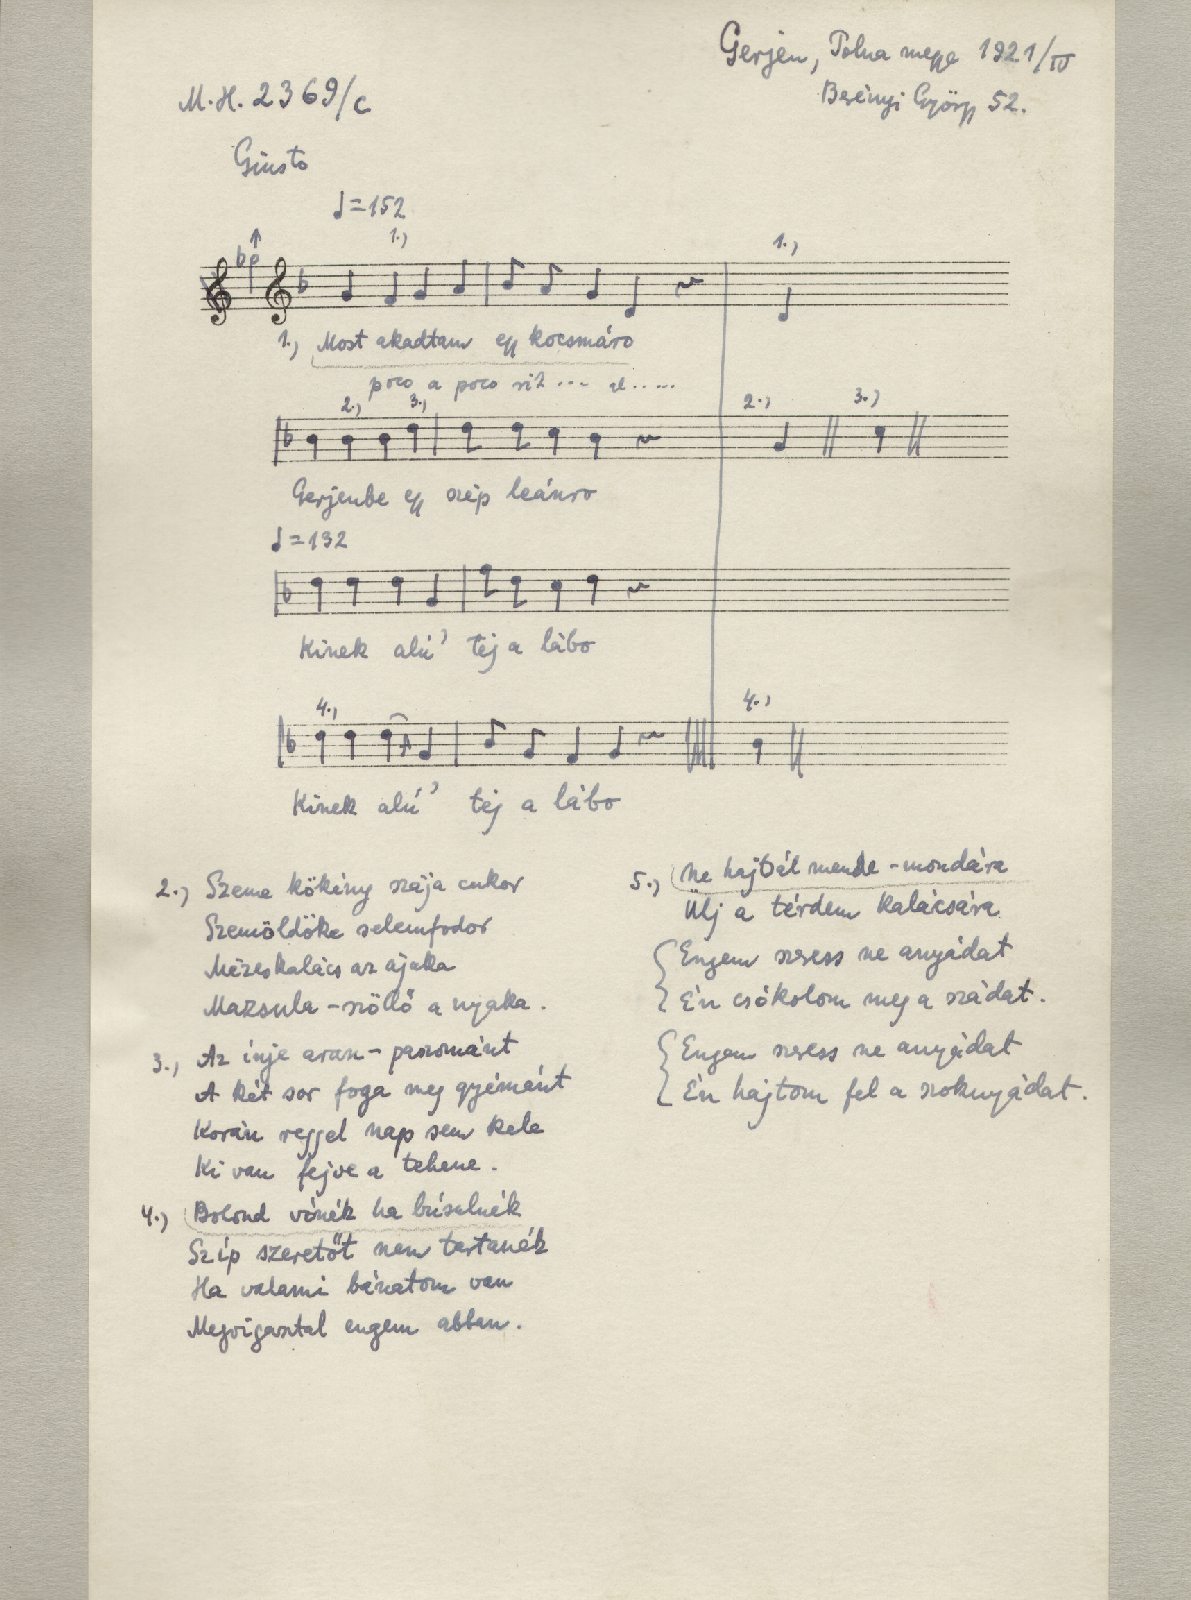 Gerjen, Tolna megye 1921/IV
M.H. 2369/c
Berényi György 52.
Giusto
♩=152
1.)
1.)
1.) Most akadtam egy kocsmáro
poco a poco rit ... al .....
2.) 3.)
2.) 3.)
Gerjenbe egy szép leánro
♩=132
Kinek alú' téj a lábo
4.)
4.)
Kinek alú' téj a lábo
2.) Szeme kökény szája cukor
Szemöldöke selemfodor
Mézeskalács az ajaka
Mazsula-szöllő a nyaka.
3.) Az inje aran-paszománt
A két sor foga meg gyémánt
Korán reggel nap sem kele
Ki van fejve a tehene.
4.) Bolond vónék ha búsulnék
Szíp szeretőt nem tartanék
Ha valami bánatom van
Megvigasztal engem abban.
5.) Ne hajbál mende-mondára
Ülj a térdem kalácsára
Engem szeress ne anyádat
Én csókolom meg a szádat.
Engem szeress ne anyádat
Én hajtom fel a szoknyádat.